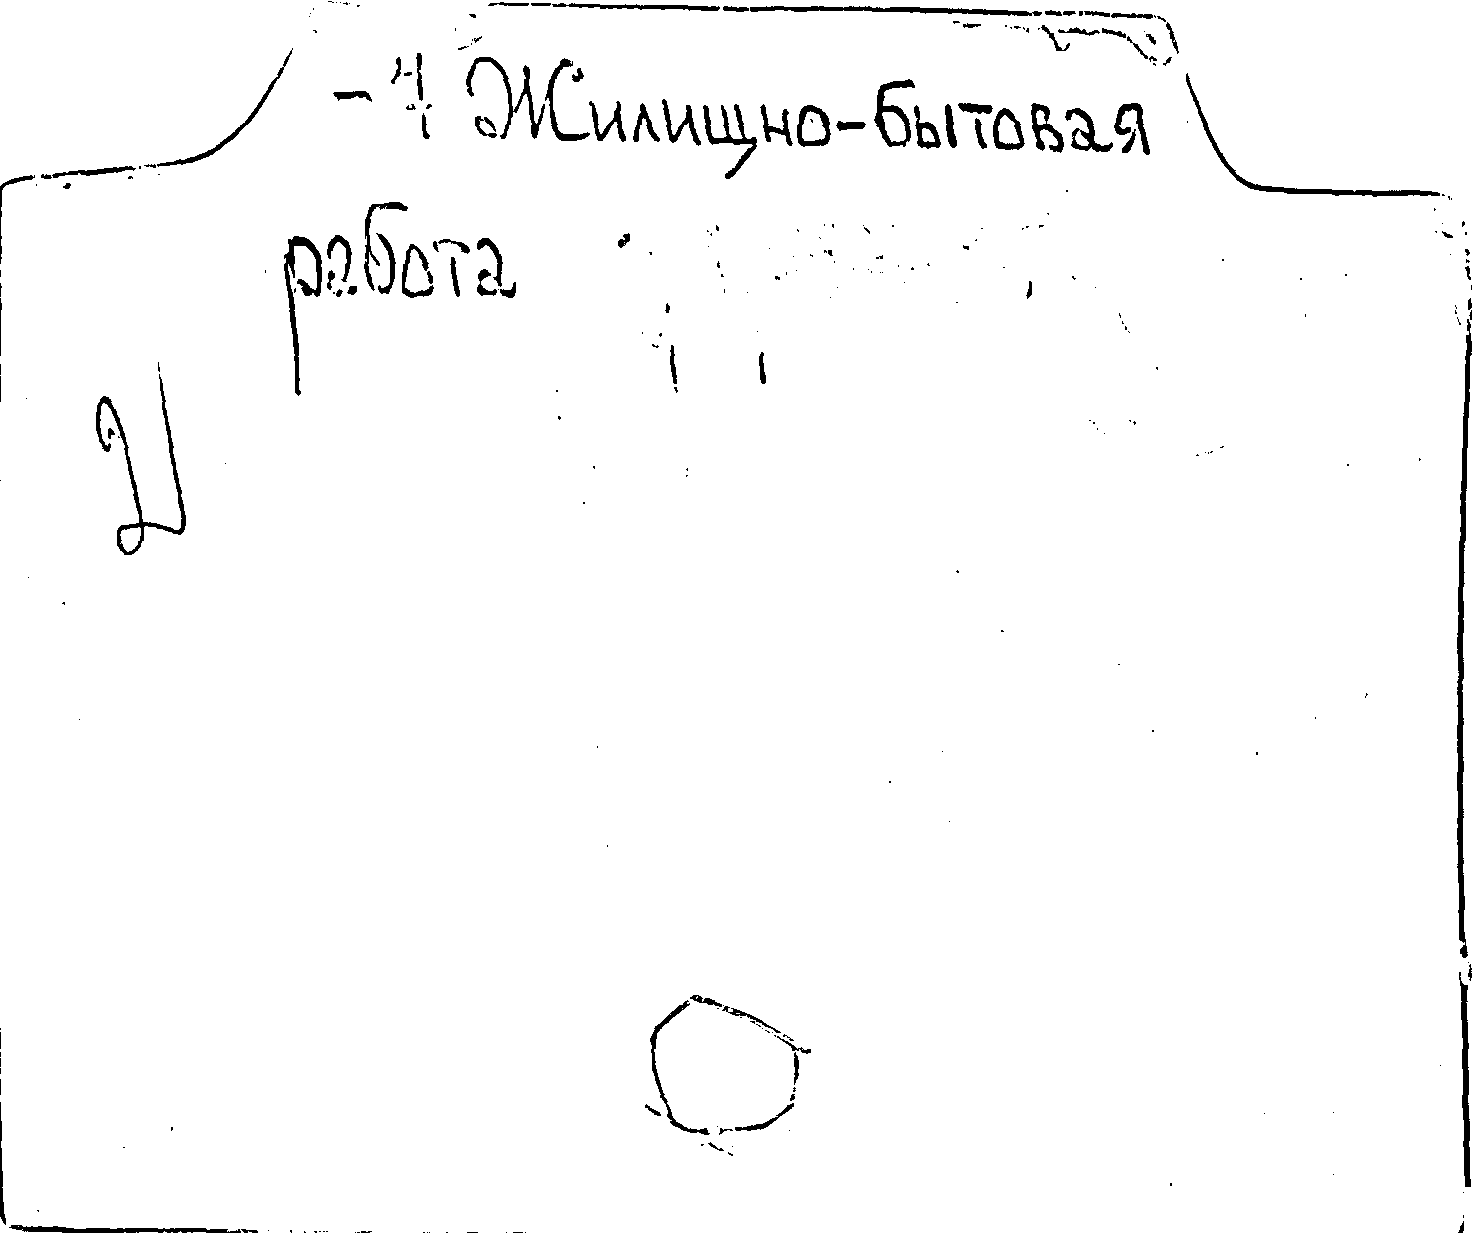 -4 Жилищно-бытовая
работа